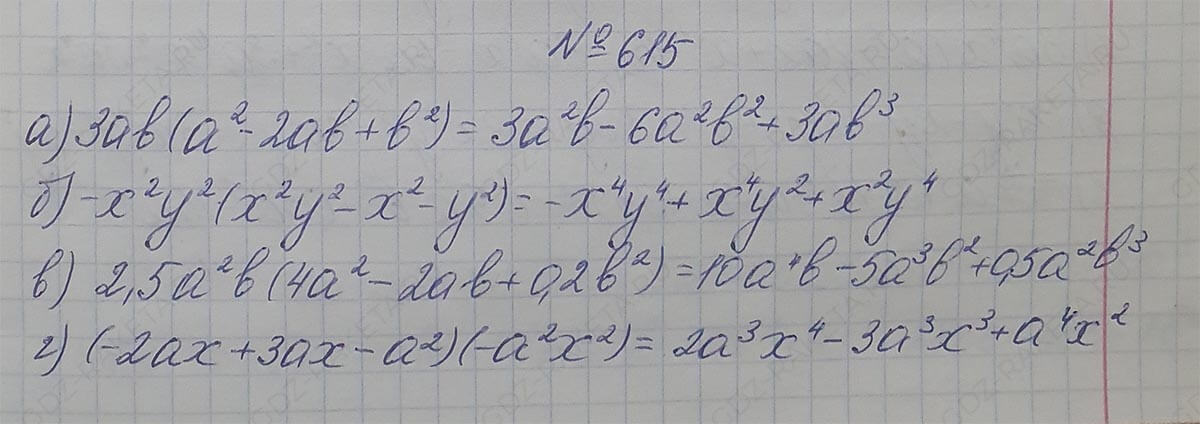 №615
а) 3ab(a²-2ab+b²)=3a²b-6a²b²+3ab³
б) -x²y²(x²y²-x²-y²)=-x⁴y⁴+x⁴y²+x²y⁴
в) 2,5a²b(4a²-2ab+0,2b²)=10a⁴b-5a³b²+0,5a²b³
г) (-2ax+3ax-a²)(-a²x²)=2a³x⁴-3a³x³+a⁴x²